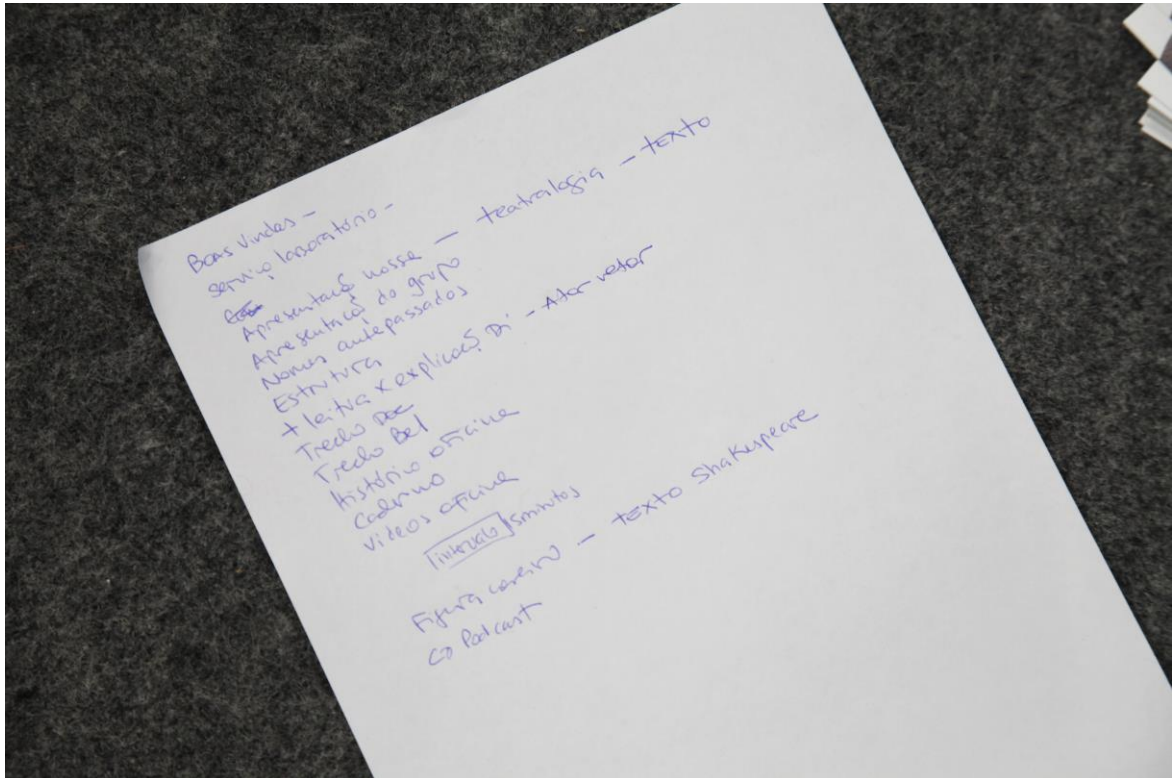 Boas Vindas –
Serviço laboratório –
Apresentação nossa — teatralogia – texto
Apresentação do grupo
Nomes antepassados
Estrutura
+ leitura x explicação Di – Ator vetor
Trecho Doc
Trecho Bel
Histórico oficina
Caderno
Videos oficina
intervalo 15minutos
Figura – texto Shakespeare
Podcast